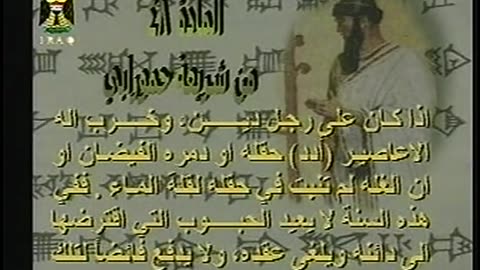 IRAQ
المادة ٤٨
من شريعة حمورابي
اذا كان على رجل ديـــن، وخرب اله
الاعاصير (ادد) حقله او دمره الفيضان او
ان الغلة لم تنبت في حقله لقلة المـاء . ففي
هذه السنة لا يعيد الحبـــوب التي اقترضها
الى دائنه ويلغي عقده، ولا يدفع فائضاً لتلك